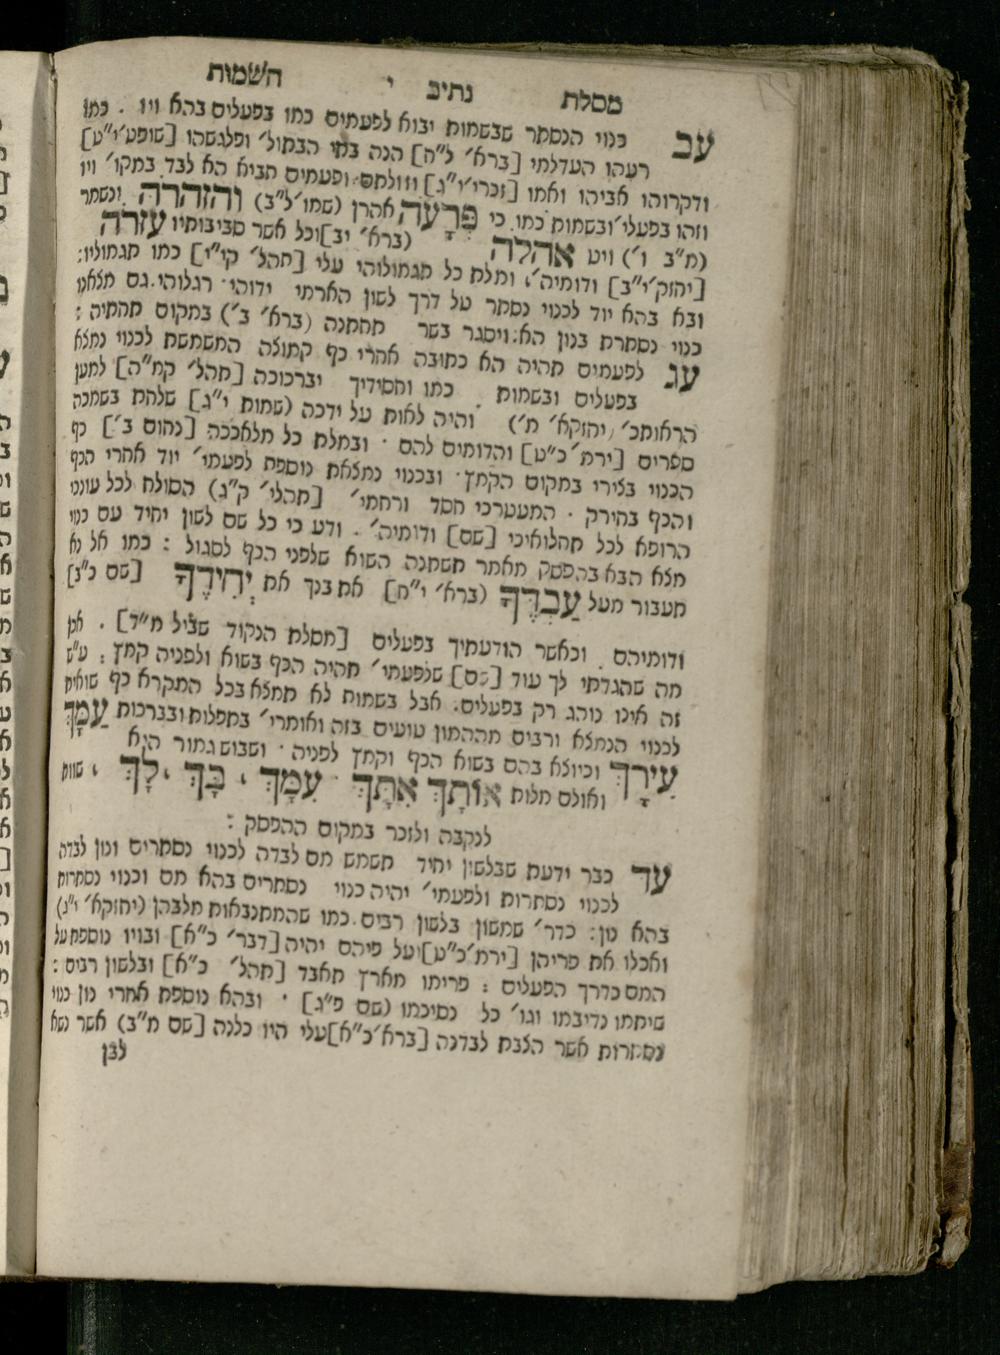 מסלת נתיב י השמות
עב כנוי הנסתר שבשמות יבוא לפעמים כמו בפעלים בהא ויו . כמו
רעהו העדלמי [ברא׳ ל״ח] הנה בתי הבתול׳ ופלגשהו [שופט׳ י״ט]
ודקרוהו אביהו ואמו [זכרי׳ י״ג] וזולתם . ופעמים תביא הא לבד במקו׳ ויו
וזהו בפעלי׳ ובשמות כמו כי פרעה אהרן (שמו׳ ל״ב) והזהרה ונשמר
(מ״ב ו׳) ויט אהלה (ברא׳ יב] וכל אשר סביבותיו עזרה
[יחזק׳ י״ב] ודומיה׳ , ומלת כל תגמולוהי עלי [תהל׳ קי״ו] כמו תגמוליו :
ובא בהא יוד לכנוי נסתר על דרך לשון הארמי ידוהי רגלוהי . גם מצאנו
כנוי נסתרת בנון הא . ויסגר בשר תחתנה (ברא׳ ב׳) במקום תחתיה :
עג לפעמים תהיה הא כתובה אחרי כף קמוצה המשמשת לכנוי נמצא
בפעלים ובשמות . כמו וחסידיך יברכוכה [תהל׳ קמ״ה] למען
הראותכ׳ (יחזקא׳ מ׳) והיה לאות על ידכה (שמות י״ג] שלחת בשמכה
ספרים [ירמ׳ כ״ט] והדומים להם . ובמלת כל מלאככה [נחום ב׳] כף
הכנוי בצירי במקום הקמץ . ובכנוי נמצאת נוספת לפעמי׳ יוד אחרי הכף
והכף בחירק . המעטרכי חסד ורחמי׳ [תהלי׳ ק״ג) הסולח לכל עונכי
הרופא לכל תחלואיכי [שם] ודומיה׳ . ודע כי כל שם לשון יחיד עם כנוי
מצא הבא בהפסק מאמר תשתנה השוא שלפני הכף לסגול : כמו אל נא
תעבור מעל עבדך (ברא׳ י״ח] את בנך את יחידך [שם כ״ב]
ודומיהם . וכאשר הודעתיך בפעלים [מסלת הנקוד שביל מ״ד] . אכן
מה שהגדתי לך עוד [שם] שלפעמי׳ תהיה הכף בשוא ולפניה קמץ : ע״ש
זה אינו נוהג רק בפעלים . אבל בשמות לא תמצא בכל המקרא כף שואית
לכנוי הנמצא ורבים מההמון טועים בזה ואומרי׳ בתפלות ובברכות עמך
עירך וכיוצא בהם בשוא הכף וקמץ לפניה . ושבוש גמור היא
ואולם מלות אותך אתך עמך , בך , לך , שוות
לנקבה ולזכר במקום ההפסק :
עד כבר ידעת שבלשון יחיד תשמש מם לבדה לכנוי נסתרים ונון לבדה
לכנוי נסתרות ולפעמי׳ יהיה כנוי נסתרים בהא מם וכנוי נסתרות
בהא נון : כדר׳ שמשון בלשון רבים . כמו שהמתנבאות מלבהן (יחזקא׳ י״ג)
ואכלו את פריהן [ירמ׳ כ״ט] ועל פיהם יהיה [דבר׳ כ״א] ובויו נוספת על
המם כדרך הפעלים : פרימו מארץ תאבד [תהל׳ כ״א] ובלשון רבים :
שיתמו נדיבמו וגו׳ כל נסיכמו (שם פ״ג] . ובהא נוספת אחרי נון כנוי
נסתרות אשר הצבת לבדנה [ברא׳ כ״א] עלי היו כלנה [שם מ״ב) אשר נשא
לבן